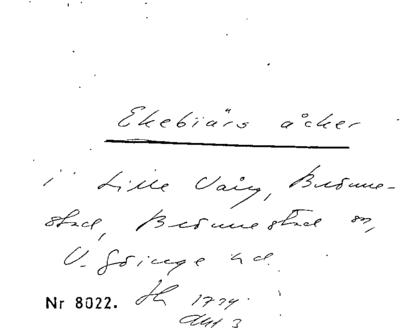 Ekebiärs åcker
i Lille Vång, Brönne-
stad, Brönnestad sn,
V. Göinge hd.
Nr 8022. Sk 1774
akt 3